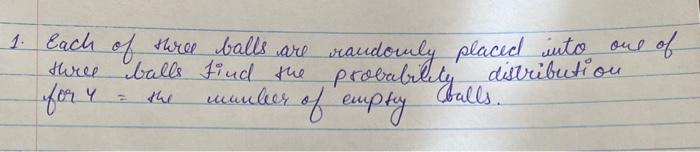 1. Each of three balls are randomly placed into one of
three balls find the probability distribution
for Y = the number of empty balls.